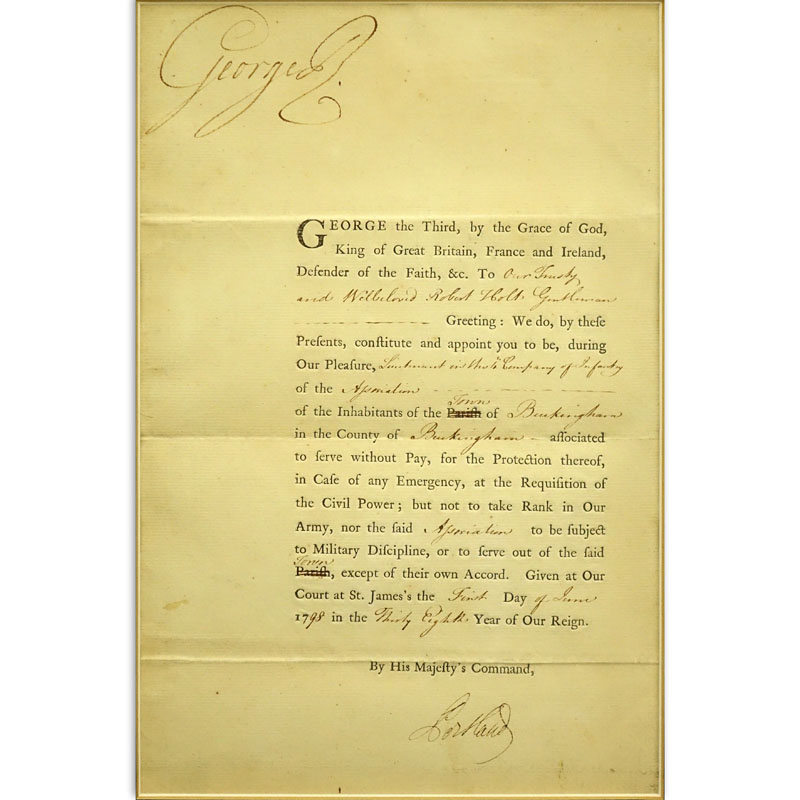 George R.
GEORGE the Third, by the Grace of God,
King of Great Britain, France and Ireland,
Defender of the Faith, &c. To Our Trusty
and Welbeloved Robert Holt Gentleman
Greeting: We do, by theſe
Preſents, conſtitute and appoint you to be, during
Our Pleaſure, Lieutenant in the Company of Infantry
of the Aſsociation
Town
of the Inhabitants of the Pariſh of Buckingham
in the County of Buckingham – aſſociated
to ſerve without Pay, for the Protection thereof,
in Caſe of any Emergency, at the Requiſition of
the Civil Power; but not to take Rank in Our
Army, nor the ſaid Aſsociation to be ſubject
to Military Diſcipline, or to ſerve out of the ſaid
Town
Pariſh, except of their own Accord. Given at Our
Court at St. James's the First Day of June
1798 in the Thirty Eighth Year of Our Reign.
By His Majeſty's Command,
Portland